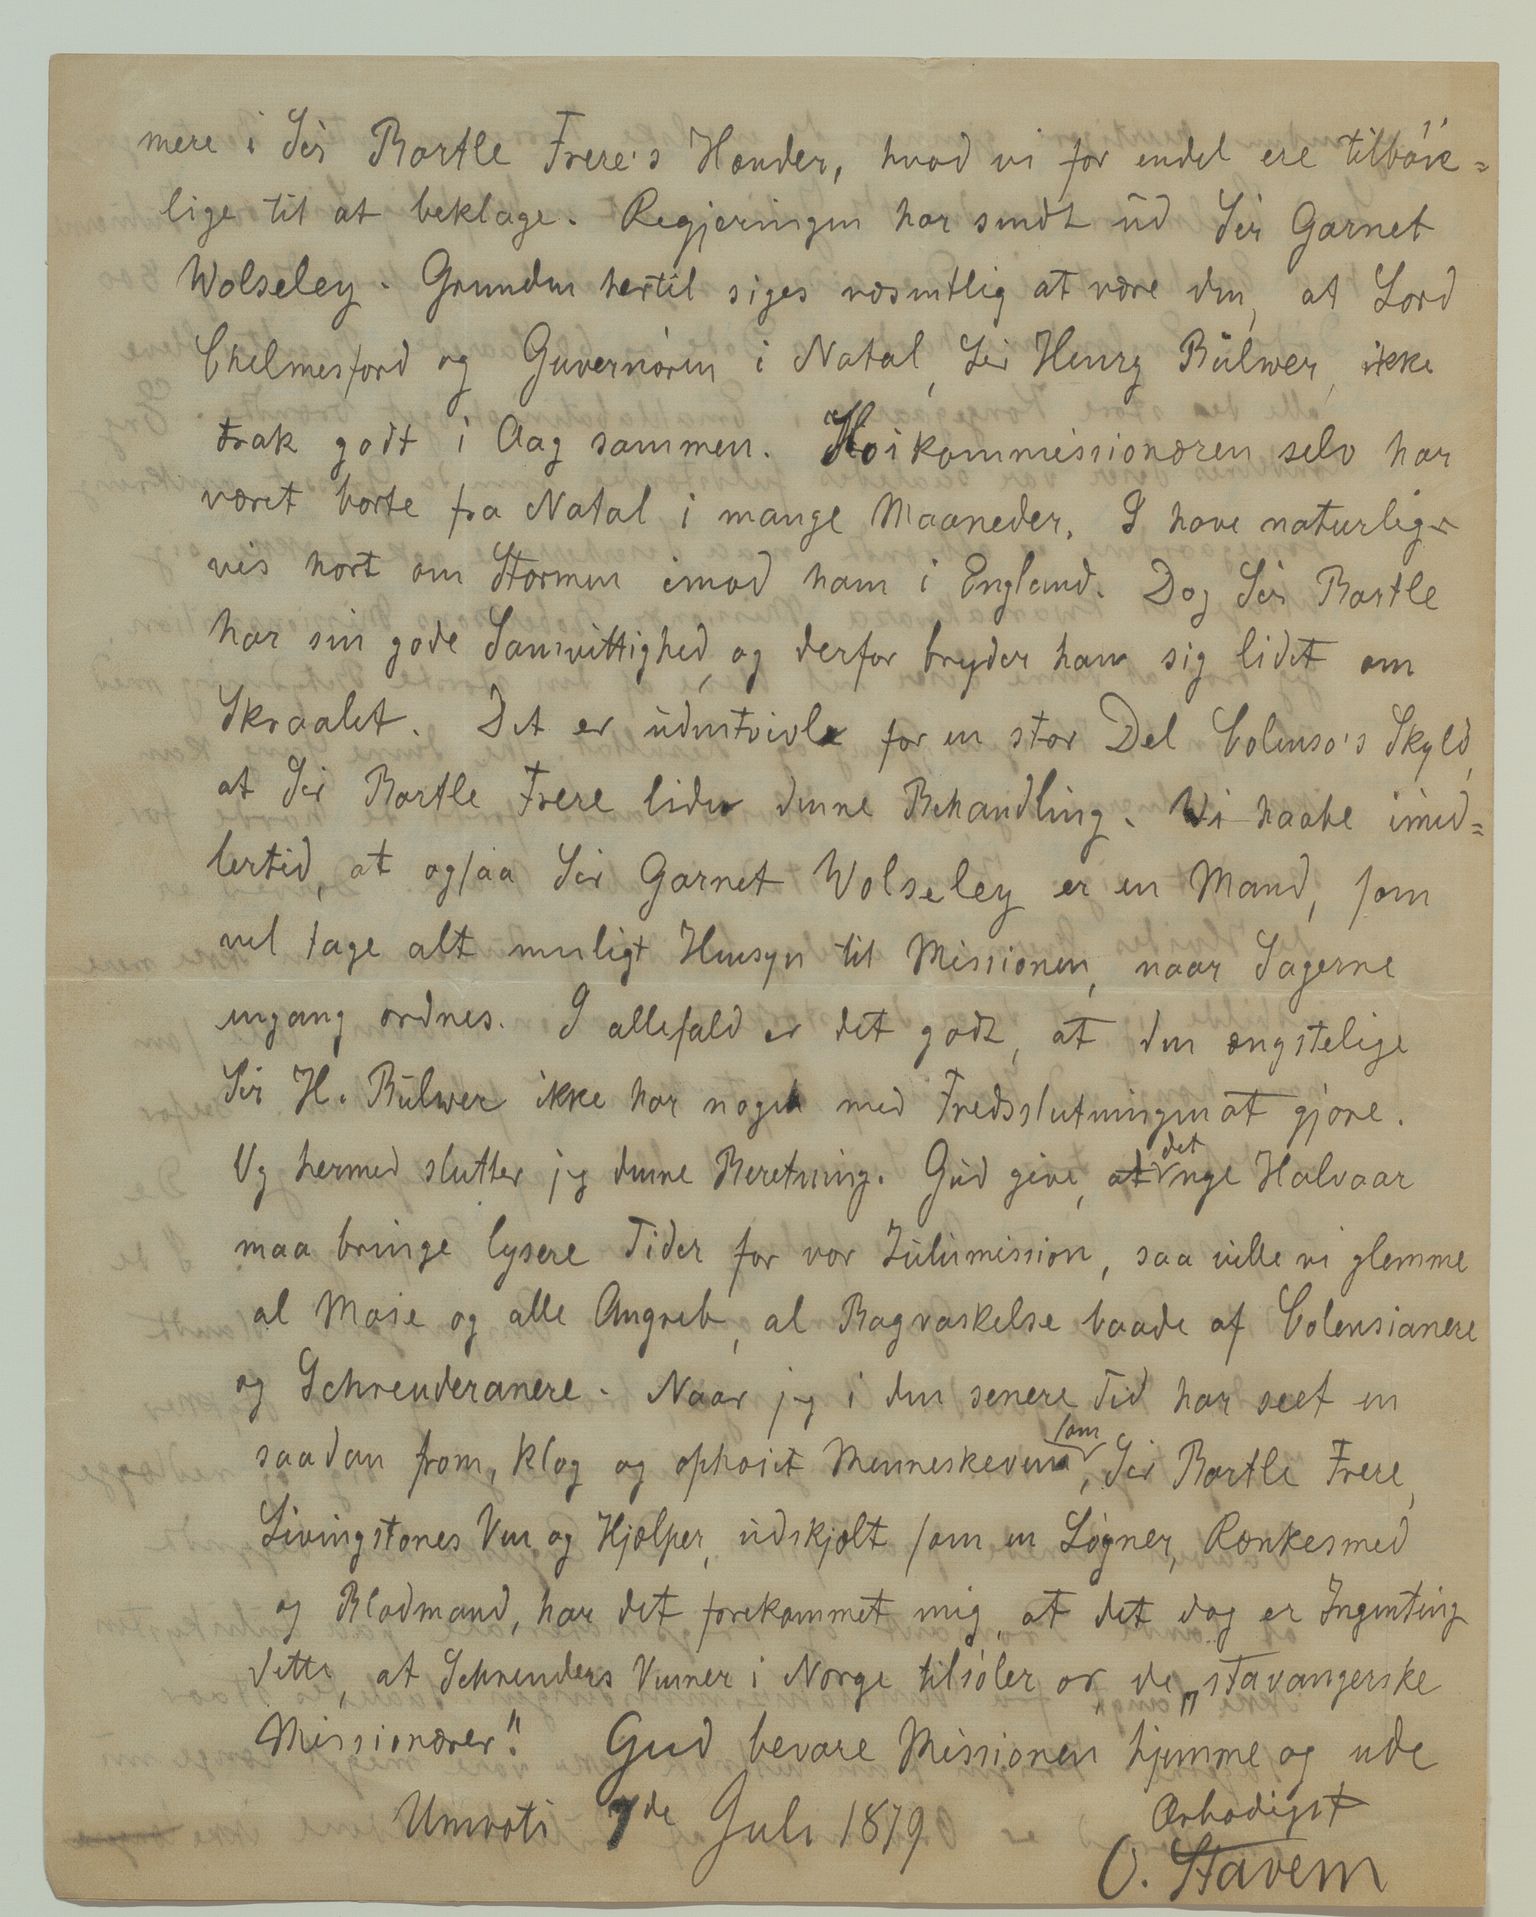 mere i Sir Bartle Frere's Hænder, hvad vi for endel ere tilböie=
lige til at beklage. Regjeringen har sendt ud Sir Garnet
Wolseley. Grunden hertil siges væsentlig at være den, at Lord
Chelmesford og Guvernören i Natal, Sir Henry Bulwer, ikke
trak godt i Aag sammen. Høikommissionæren selv har
været borte fra Natal i mange Maaneder. I have naturlig-
vis hørt om Stormen imod ham i England. Dog Sir Bartle
har sin gode Samvittighed, og derfor bryder han sig lidet om
Skraalet. Det er udentvivl for en stor Del Colenso's Skyld,
at Sir Bartle Frere lider denne Behandling. Vi haabe imid=
lertid, at ogsaa Sir Garnet Wolseley er en Mand, som
vil tage alt muligt Hensyn til Missionen, naar Sagerne
engang ordnes. I allefald er det godt, at den ængstelige
Sir H. Bulwer ikke har noget med Fredsslutningen at gjøre.
Og hermed slutter jeg denne Beretning. Gud give, at det nye Halvaar
maa bringe lysere Tider for vor Zulumission, saa ville vi glemme
al Möie og alle Angreb, al Bagvaskelse baade af Colensianere
og Schreuderanere. Naar jeg i den senere Tid har seet en
saadan from, klog og ophøiet Menneskeven, som Sir Bartle Frere,
Livingstones Ven og Hjælper, udskjælt som en Løgner, Rænkesmed
og Blodmand, har det forekommet mig, at det dog er Ingenting
dette, at Schreuders Venner i Norge tilsöler os, de „stavangerske
Missionærer". Gud bevare Missionen hjemme og ude
Umvoti 7de Juli 1879 Ærbødigst
O. Stavem